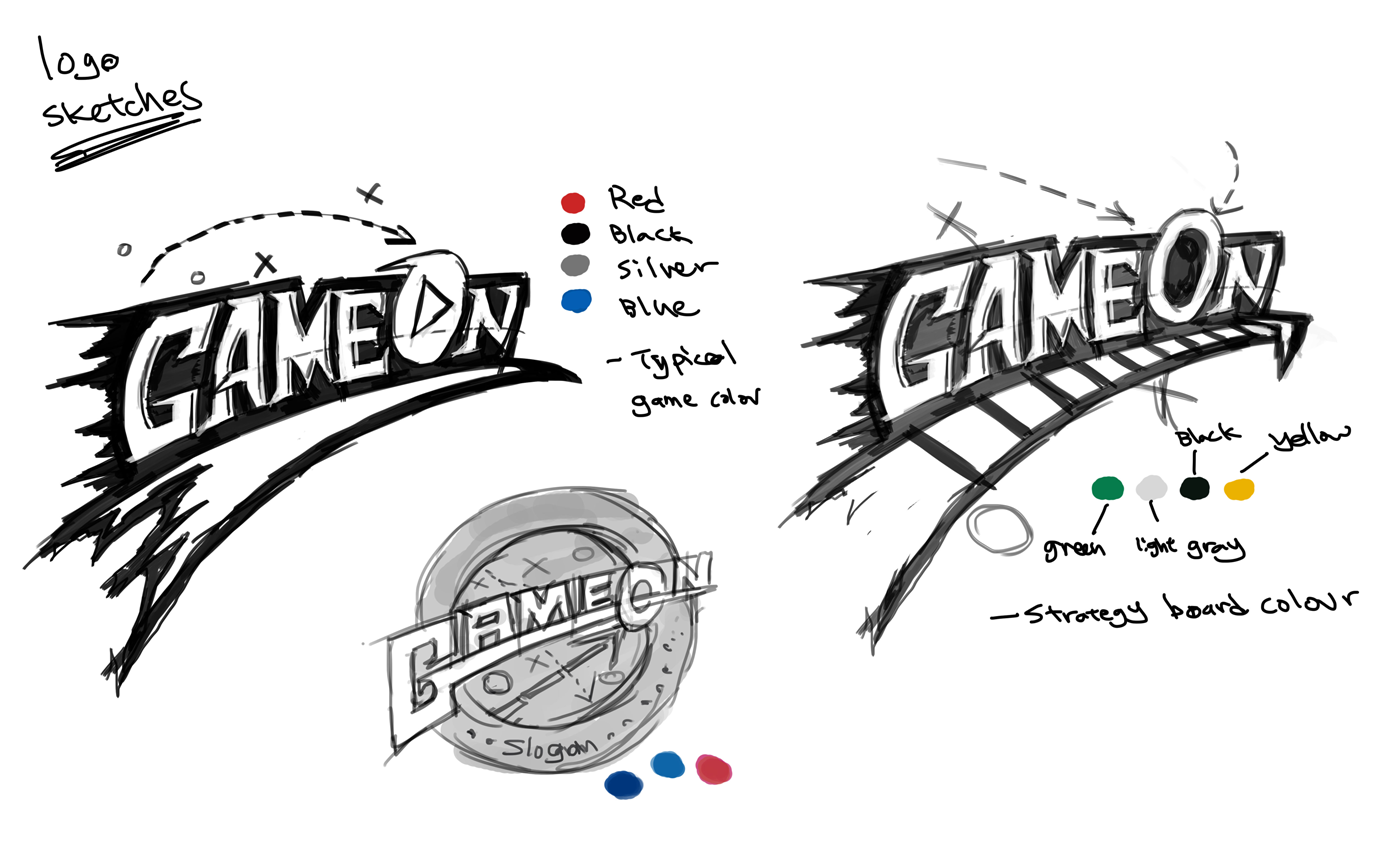 logo
sketches
GAMEON
Red
Black
Silver
Blue
- Typical
game color
GAMEON
Black
yellow
green
light gray
- Strategy board colour
GAMEON
Slogan